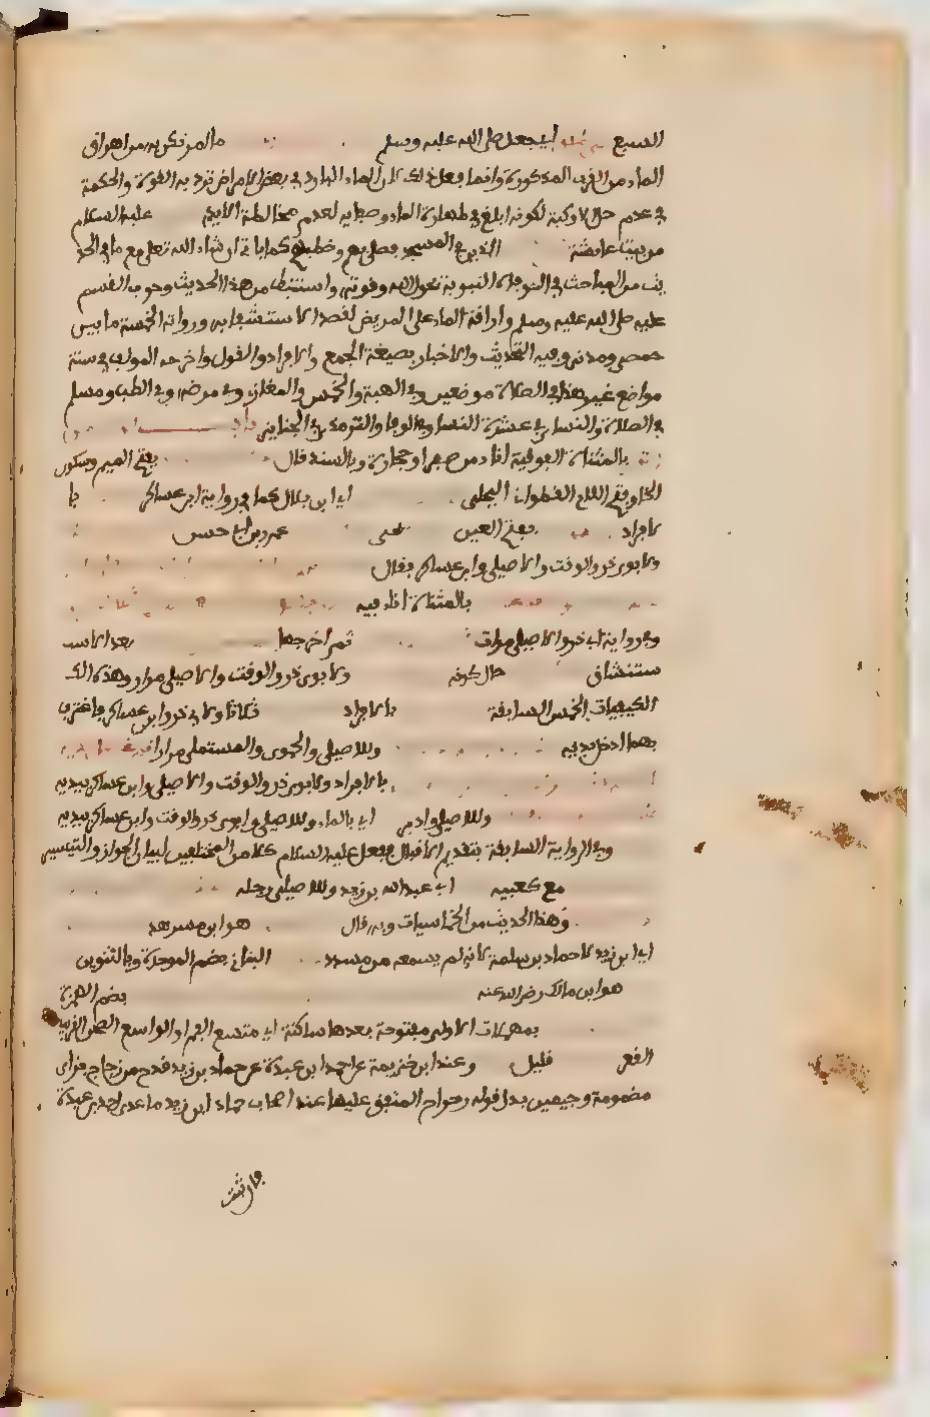 السبع اي جعل صلى الله عليه وسلم ما امرتكن به من اهراق
الماء من القرب المذكورة وانما فعل ذلك لان الماء البارد في بعض الامراض ترد به القوة والحكمة
في عدم حل الاوكية لكونه ابلغ في طهارة الماء وصفايه لعدم مخالطة الايدي عليه السلام
من بيت عايشة الذين في المسجد فصلى بهم وخطبهم كما ياتي ان شاء الله تعلى مع ما في الحد
يث من المباحث في الوفاة النبوية بحول الله وقوته واستنبط من هذا الحديث وجوب القسم
عليه صلى الله عليه وسلم واراقة الماء على المريض لقصد الاستشفا به ورواته الخمسة ما بين
حمصي ومدني وفيه التحديث والاخبار بصيغة الجمع والافراد والقول واخرجه المولف في ستة
مواضع غير هذا في الصلاة موضعين وفي الهبة والخمس والمغازي وفي مرضه وفي الطب ومسلم
في الصلاة والنساي في عشرة النسا وفي الوفا والترمذي في الجنايز باب
بالمثناة الفوقية اناء من صفر او حجارة وبالسند قال بفتح الميم وسكون
الخا وفتح اللام القطواني البجلي اي ابن بلال كما في رواية ابن عساكر با
لافراد بفتح العين يحيى عمرو بن ابي حسن
ولابوي ذر والوقت والاصيلي وابن عساكر فقال
بالمثناة اناء فيه
وفي رواية ابي ذر والاصيلي مرات ثم اخرجها بعد الاست
ستنشاق حال كونه ولابوي ذر والوقت والاصيلي مرار وهذه الك
الكيفيات الخمس السابقة بالافراد ثلاثا ولابي ذر وابن عساكر فاغترف
بهما ادخل يديه وللاصيلي والحموي والمستملي مرارا
بالافراد ولابوي ذر والوقت والاصيلي وابن عساكر بيديه
وللاصيلي وادبر اي بالماء وللاصيلي وابوي ذر والوقت وابن عساكر بيديه
وفي الرواية السابقة بتقديم الاقبال ففعل عليه السلام كلا من المختلفين لبيان الجواز والتيسير
مع كعبيه اي عبد الله بن زيد وللاصيلي رجله
وهذا الحديث من الخماسيات وبه قال هو ابن مسرهد
اي ابن زيد لا حماد بن سلمة لانه لم يسمعه من مسدد البناني بضم الموحدة وبالنونين
هو ابن مالك رضي الله عنه بضم الهمزة
بمهملات الاولى مفتوحة بعدها ساكنة اي متسع الفم او الواسع الصحن القريب
القعر قليل وعند ابن خزيمة عن احمد ابن عبدة عن حماد بن زيد قدح من زجاج بزاي
مضمومة وجيمين بدل قوله رحراح المتفق عليها عند اصحاب حماد ابن زيد ما عدى احمد بن عبدة